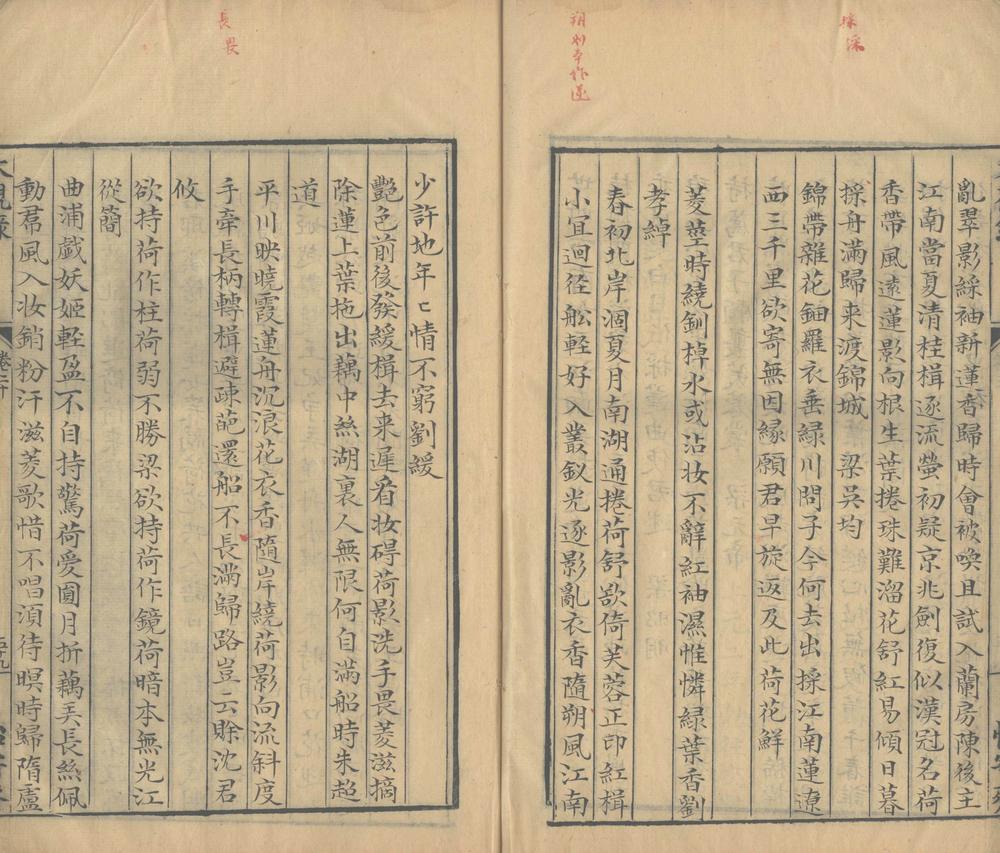 採深
朔別本作逆
亂翠影綵袖新蓮香歸時會被喚且試入蘭房陳後主
江南當夏清桂楫逐流螢初疑京兆劍復似漢冠名荷
香帶風遠蓮影向根生葉捲珠難溜花舒紅易傾日暮
採舟滿歸来渡錦城 梁吳均
錦帶雜花鈿羅衣垂緑川問子今何去出採江南蓮遼
西三千里欲寄無因緣願君早旋返及此荷花鮮
菱莖時繞釧棹水或沾妆不辭紅袖濕惟憐緑葉香劉
孝綽
春初北岸涸夏月南湖通捲荷舒欲倚芙蓉正印紅楫
小宜迴徑舩輕好入叢釵光逐影亂衣香隨朔風江南
長畏
少許地年〻情不窮劉緩
艷色前後發緩楫去来遲㸔妆碍荷影洗手畏菱滋摘
除蓮上葉拖出藕中絲湖裏人無限何自滿船時朱超
道
平川映曉霞蓮舟沉浪花衣香隨岸繞荷影向流斜度
手牽長柄轉楫避疎葩還船不長滿歸路豈云賖沈君
攸
欲持荷作柱荷弱不勝梁欲持荷作鏡荷暗本無光江
從簡
曲浦戯妖姬軽盈不自持驚荷愛圓月折藕𠀍長絲佩
動羣風入妆銷粉汗滋菱歌惜不唱湏待暝時歸隋盧
卷二十